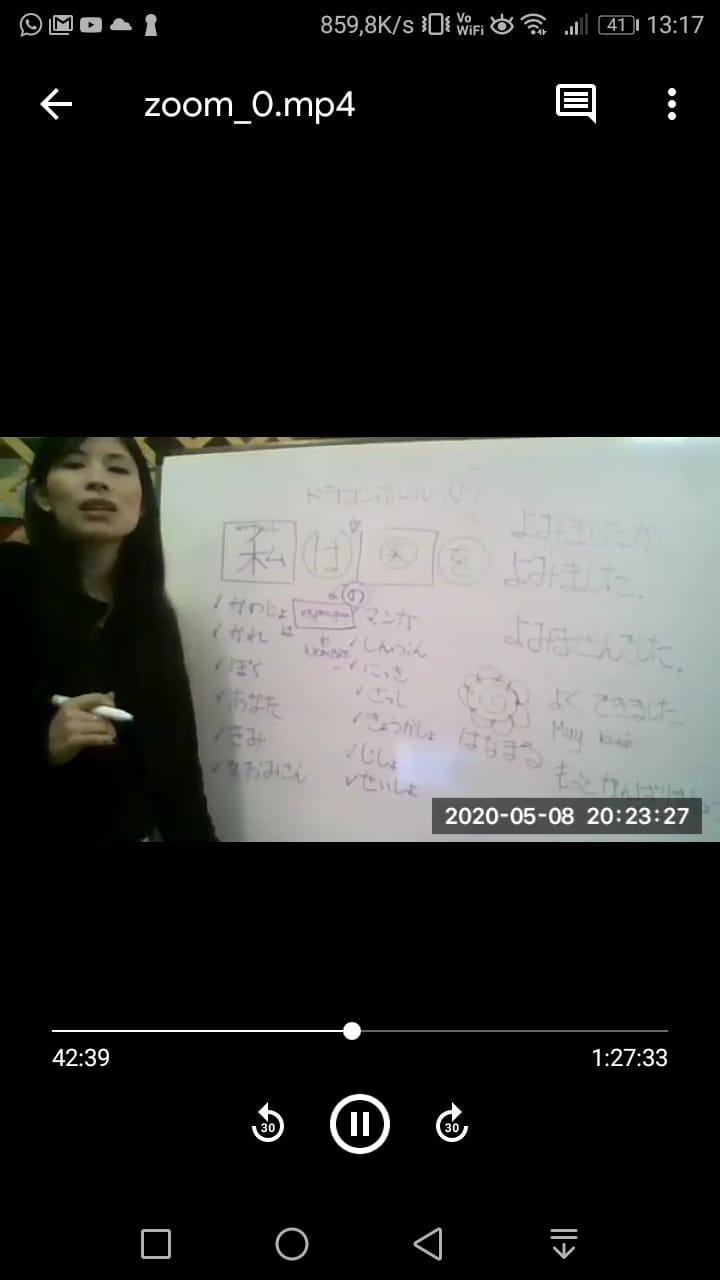 859,8K/s Vo WiFi 41 13:17
zoom_0.mp4
ドラゴンボール(の)
私 は 本 を
よみましたか
よみました.
よみませんでした.
の
かのじょ
かれ
ぼく
あなた
きみ
なおみさん
は
Nombre
マンガ
しんぶん
にっき
ざっし
きょうかしょ
じしょ
せいしょ
はなまる
よく できました
Muy bien
もっと がんばりましょう
2020-05-08 20:23:27
42:39 1:27:33
30 30